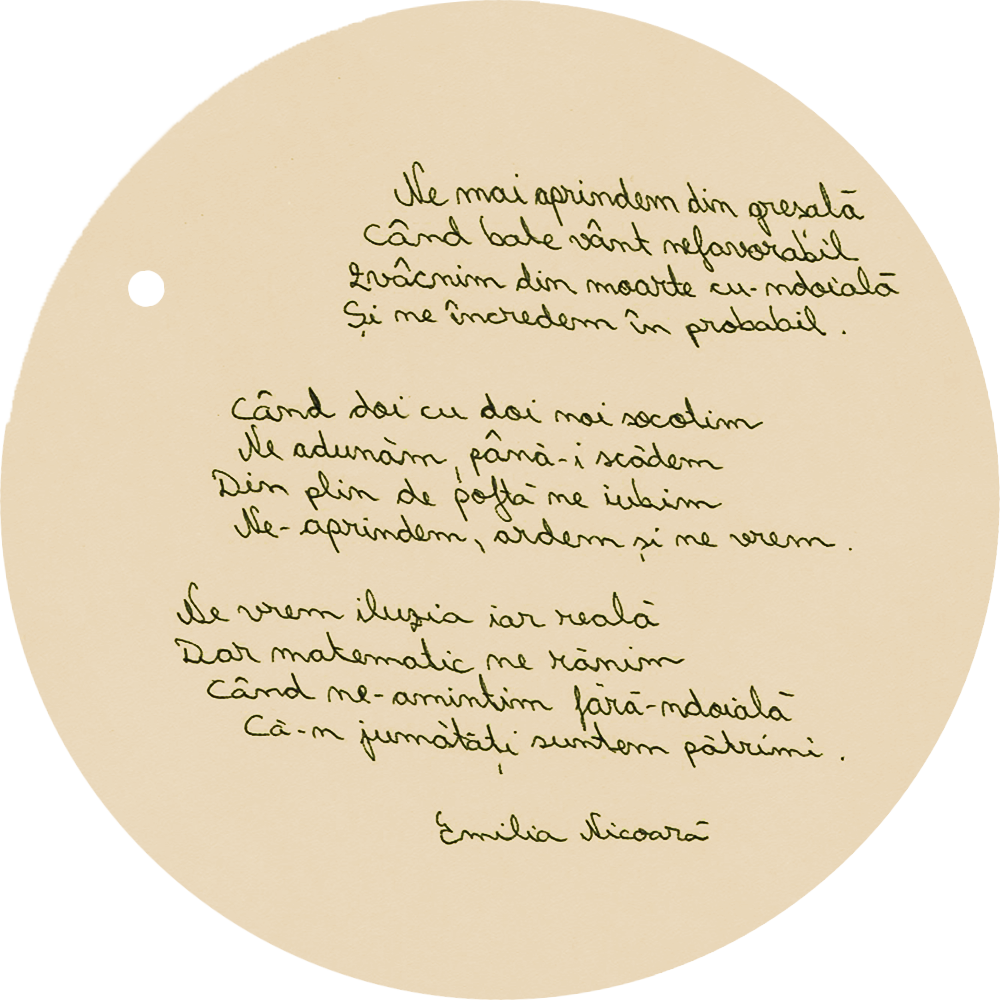 Ne mai aprindem din greșală
Când bate vânt nefavorabil
Zvâcnim din moarte cu-ndoială
Și ne încredem în probabil.
Când doi cu doi noi socotim
Ne adunăm, până-i scădem
Din plin de poftă ne iubim
Ne-aprindem, ardem și ne vrem.
Ne vrem iluzia iar reală
Dar matematic ne rănim
Când ne-amintim fără-ndoială
Că-n jumătăți suntem pătrimi.
Emilia Nicoară